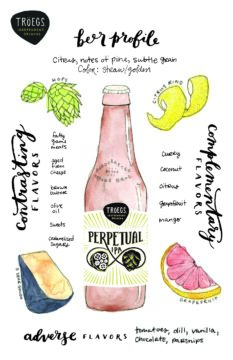 TRÖEGS
INDEPENDENT
BREWING
beer profile
Citrus, notes of pine, subtle grain
Color: straw/golden
HOPS
CITRUS RIND
contrasting
FLAVORS
fatty
game
meats
aged
farm
cheese
brown
butter
olive
oil
sweets
caramelized
sugars
TRÖEGS
PERPETUAL
IPA
complementary
FLAVORS
curry
coconut
citrus
grapefruit
mango
GRAPEFRUIT
adverse FLAVORS
tomatoes, dill, vanilla,
chocolate, parsnips